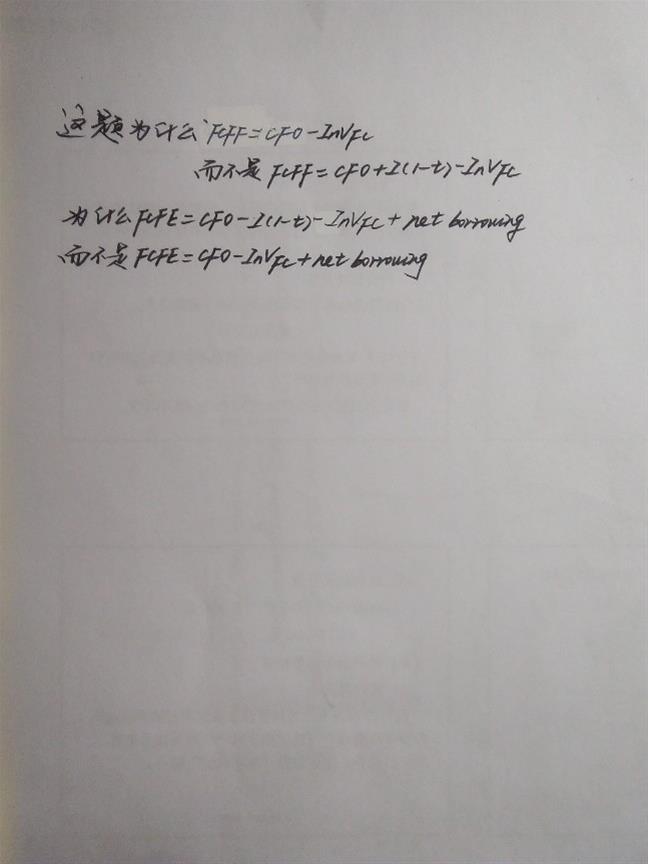 这题为什么 FCFF=CFO-InvFC
而不是 FCFF=CFO+I(1-t)-InvFC
为什么 FCFE=CFO-I(1-t)-InvFC+net borrowing
而不是 FCFE=CFO-InvFC+net borrowing